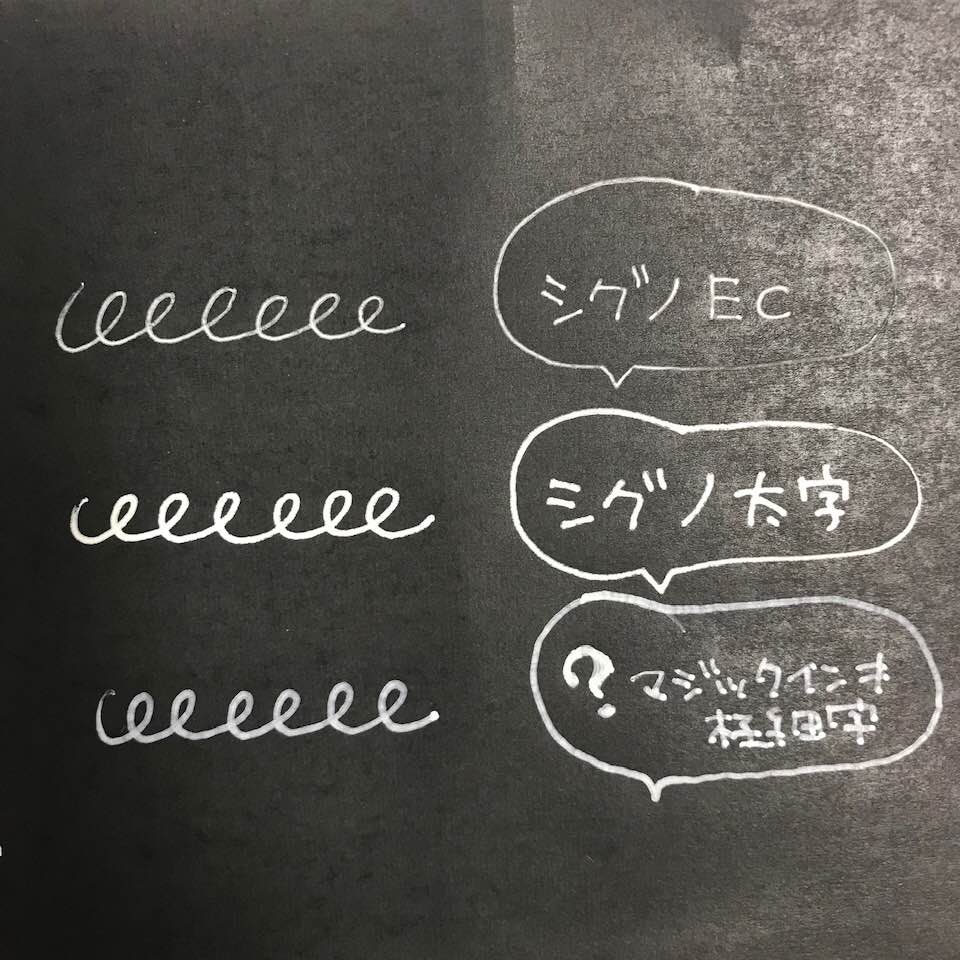 シグノ EC
シグノ 太字
? マジックインキ
極細字